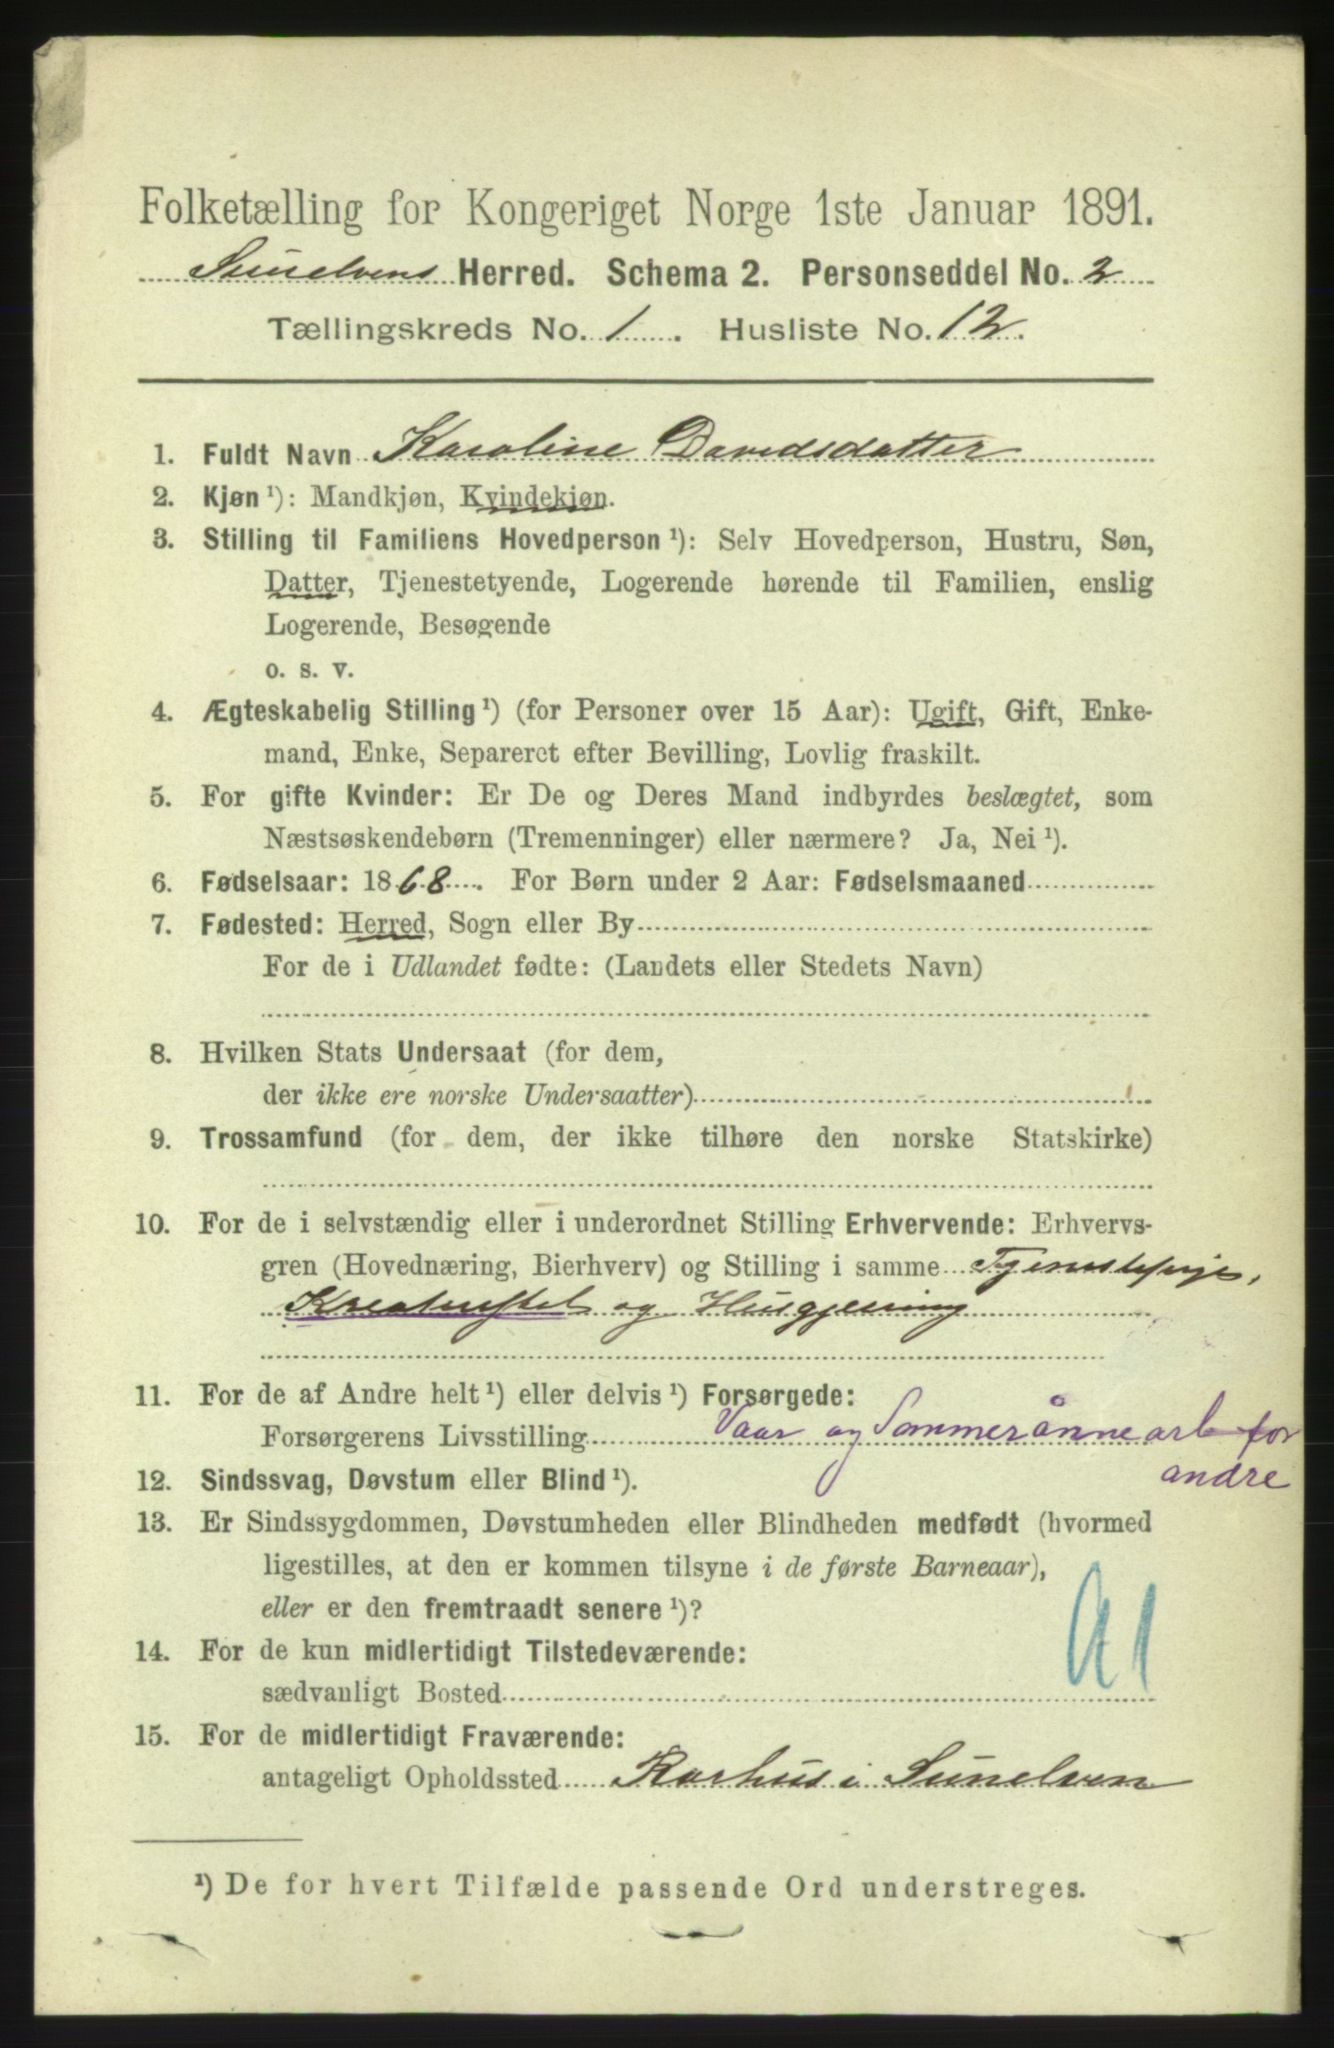 Folketælling for Kongeriget Norge 1ste Januar 1891.
Sunelvens Herred. Schema 2. Personseddel No. 2
Tællingskreds No. 1. Husliste No. 12.
1. Fuldt Navn Karoline Davidsdatter
2. Kjøn ¹): Mandkjøn, Kvindekjøn.
3. Stilling til Familiens Hovedperson ¹): Selv Hovedperson, Hustru, Søn,
Datter, Tjenestetyende, Logerende hørende til Familien, enslig
Logerende, Besøgende
o. s. v.
4. Ægteskabelig Stilling ¹) (for Personer over 15 Aar): Ugift, Gift, Enke-
mand, Enke, Separeret efter Bevilling, Lovlig fraskilt.
5. For gifte Kvinder: Er De og Deres Mand indbyrdes beslægtet, som
Næstsøskendebørn (Tremenninger) eller nærmere? Ja, Nei ¹).
6. Fødselsaar: 1868. For Børn under 2 Aar: Fødselsmaaned
7. Fødested: Herred, Sogn eller By
For de i Udlandet fødte: (Landets eller Stedets Navn)
8. Hvilken Stats Undersaat (for dem,
der ikke ere norske Undersaatter)
9. Trossamfund (for dem, der ikke tilhøre den norske Statskirke)
10. For de i selvstændig eller i underordnet Stilling Erhvervende: Erhvervs-
gren (Hovednæring, Bierhverv) og Stilling i samme Tjenestepige,
Kreaturstel og Husgjerning
11. For de af Andre helt ¹) eller delvis ¹) Forsørgede:
Forsørgerens Livsstilling Vaar og Sommerånnearb for
andre
12. Sindssvag, Døvstum eller Blind ¹).
13. Er Sindssygdommen, Døvstumheden eller Blindheden medfødt (hvormed
ligestilles, at den er kommen tilsyne i de første Barneaar),
eller er den fremtraadt senere ¹)?
14. For de kun midlertidigt Tilstedeværende:
sædvanligt Bosted
15. For de midlertidigt Fraværende:
antageligt Opholdssted Korhus i Sunelven
¹) De for hvert Tilfælde passende Ord understreges.